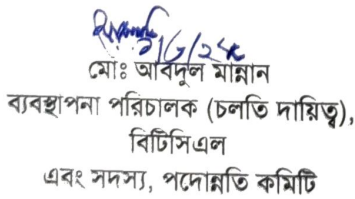 মোঃ আবদুল মান্নান
ব্যবস্থাপনা পরিচালক (চলতি দায়িত্ব),
বিটিসিএল
এবং সদস্য, পদোন্নতি কমিটি